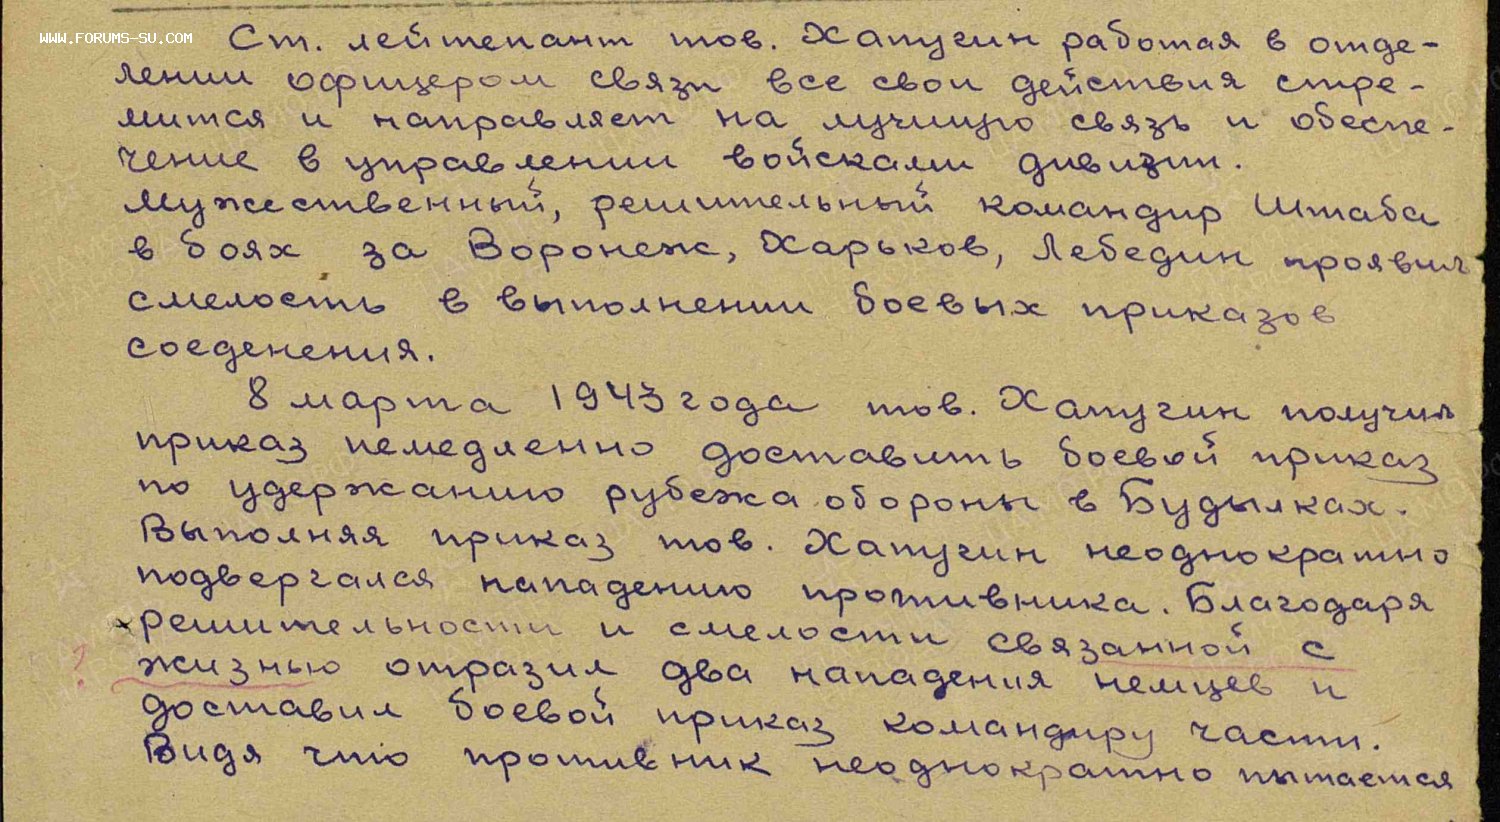 WWW.FORUMS-SU.COM
Ст. лейтенант тов. Хапугин работая в отде-
лении офицером связи все свои действия стре-
мится и направляет на лучшую связь и обеспе-
чение в управлении войсками дивизии.
Мужественный, решительный командир штаба
в боях за Воронеж, Харьков, Лебедин проявил
смелость в выполнении боевых приказов
соеденения.
8 марта 1943 года тов. Хапугин получил
приказ немедленно доставить боевой приказ
по удержанию рубежа обороны в Будылках.
Выполняя приказ тов. Хапугин неоднократно
подвергался нападению противника. Благодаря
решительности и смелости связанной с
? жизнью отразил два нападения немцев и
доставил боевой приказ командиру части.
Видя что противник неоднократно пытается